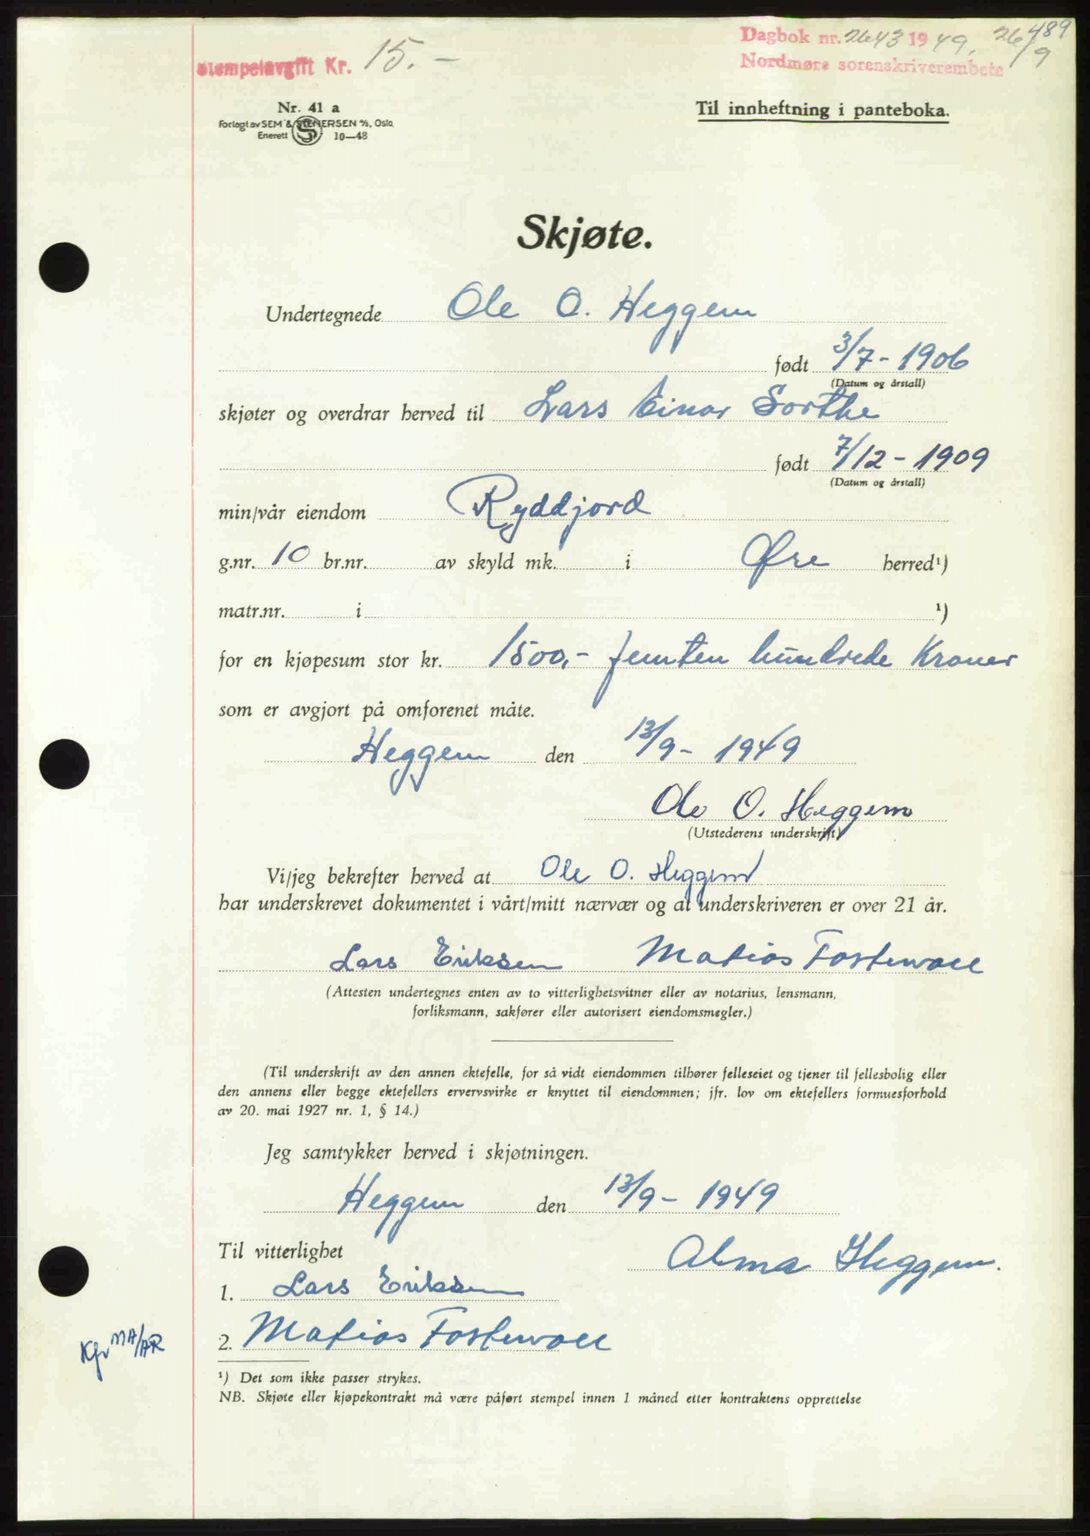 489
Dagbok nr. 2643 1949. 26/9
Nordmøre sorenskriverembete
Stempelavgift Kr. 15.-
Nr. 41 a
Forlagt av SEM & STENERSEN A/S, Oslo
Enerett S 10—48
Til innheftning i panteboka.
Skjøte.
Undertegnede Ole O. Heggem
født 3/7 - 1906
(Datum og årstall)
skjøter og overdrar herved til Lars Einar Sorthe
født 7/12 - 1909
(Datum og årstall)
min/vår eiendom Ryddjord
g.nr. 10 br.nr. av skyld mk. i Øre herred¹)
matr.nr. i ¹)
for en kjøpesum stor kr. 1500,- femten hundrede Kroner
som er avgjort på omforenet måte.
Heggem den 13/9 - 1949
Ole O. Heggem
(Utstederens underskrift)
Vi/jeg bekrefter herved at Ole O. Heggem
har underskrevet dokumentet i vårt/mitt nærvær og at underskriveren er over 21 år.
Lars Eriksen Matias Fostervoll
(Attesten undertegnes enten av to vitterlighetsvitner eller av notarius, lensmann,
forliksmann, sakfører eller autorisert eiendomsmegler.)
(Til underskrift av den annen ektefelle, for så vidt eiendommen tilhører felleseiet og tjener til fellesbolig eller
den annens eller begge ektefellers ervervsvirke er knyttet til eiendommen; jfr. lov om ektefellers formuesforhold
av 20. mai 1927 nr. 1, § 14.)
Jeg samtykker herved i skjøtningen.
Heggem den 13/9 - 1949
Til vitterlighet
Alma Heggem.
1. Lars Eriksen
2. Matias Fostervoll
Kfr MA/AR
¹) Det som ikke passer strykes.
NB. Skjøte eller kjøpekontrakt må være påført stempel innen 1 måned etter kontraktens opprettelse